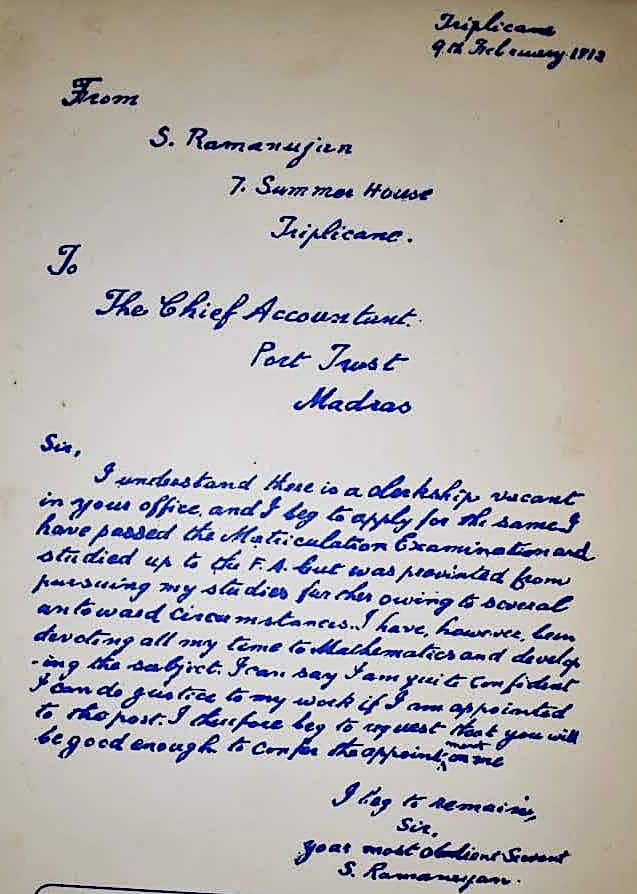 Triplicane
9th February 1912
From
S. Ramanujan
7. Summer House
Triplicane.
To
The Chief Accountant.
Port Trust
Madras
Sir,
I understand there is a clerkship vacant
in your office, and I beg to apply for the same. I
have passed the Matriculation Examination and
studied up to the F.A. but was prevented from
pursuing my studies further owing to several
untoward circumstances. I have, however, been
devoting all my time to Mathematics and develop
-ing the subject. I can say I am quite confident
I can do justice to my work if I am appointed
to the post. I therefore beg to request that you will
be good enough to confer the appointment on me
I beg to remain,
Sir,
your most obedient Servant
S. Ramanujan.